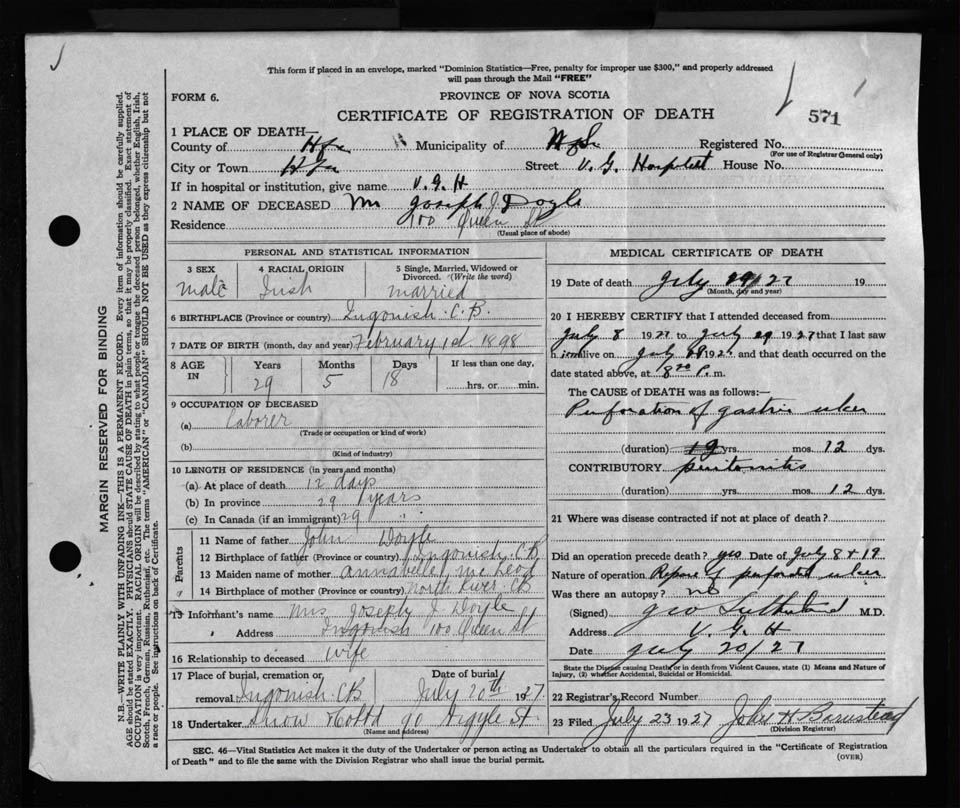 This form if placed in an envelope, marked "Dominion Statistics—Free, penalty for improper use $300," and properly addressed
will pass through the Mail "FREE"
FORM 6.
PROVINCE OF NOVA SCOTIA
CERTIFICATE OF REGISTRATION OF DEATH
571
1 PLACE OF DEATH—
County of Hfx Municipality of Registered No.
(For use of Registrar General only)
City or Town Hfx Street V. G. Hospital House No.
If in hospital or institution, give name V. G. H
2 NAME OF DECEASED Mr Joseph J Doyle
Residence 100 Queen St
(Usual place of abode)
PERSONAL AND STATISTICAL INFORMATION
3 SEX 4 RACIAL ORIGIN 5 Single, Married, Widowed or
Divorced. (Write the word)
male Irish married
6 BIRTHPLACE (Province or country) Ingonish. C.B.
7 DATE OF BIRTH (month, day and year) February 1st 1898
8 AGE IN Years Months Days If less than one day,
29 5 18 hrs. or min.
9 OCCUPATION OF DECEASED
(a) Laborer
(Trade or occupation or kind of work)
(b)
(Kind of industry)
10 LENGTH OF RESIDENCE (in years and months)
(a) At place of death 12 days
(b) In province 29 years
(c) In Canada (if an immigrant) 29 "
Parents
11 Name of father John Doyle
12 Birthplace of father (Province or country) Ingonish. CB
13 Maiden name of mother Annabelle McLeod
14 Birthplace of mother (Province or country) North River CB
15 Informant's name Mrs Joseph J Doyle
" Address Ingonish 100 Queen St
16 Relationship to deceased wife
17 Place of burial, cremation or Date of burial
removal Ingonish. CB July 20th 1927
18 Undertaker Snow & Co Ltd 90 Argyle St.
(Name and address)
MEDICAL CERTIFICATE OF DEATH
19 Date of death July /27 19
(Month, day and year)
20 I HEREBY CERTIFY that I attended deceased from
July 8 1927 to July 1927 that I last saw
h im alive on July 1927 and that death occurred on the
date stated above, at 8 20 P. m.
The CAUSE of DEATH was as follows:
Perforation of gastric ulcer
(duration) yrs. mos. 12 dys.
CONTRIBUTORY peritonitis
(duration) yrs. mos. 12 dys.
21 Where was disease contracted if not at place of death?
Did an operation precede death? yes Date of July 8 & 19
Nature of operation Repair of perforated ulcer
Was there an autopsy? no
(Signed) Geo Sutherland M.D.
Address V. G. H
Date July 20/27
State the Disease causing Death, or in death from Violent Causes, state (1) Means and Nature of
Injury, (2) whether Accidental, Suicidal or Homicidal.
22 Registrar's Record Number
23 Filed July 23 1927 John H Barnstead
(Division Registrar)
SEC. 46—Vital Statistics Act makes it the duty of the Undertaker or person acting as Undertaker to obtain all the particulars required in the "Certificate of Registration
of Death" and to file the same with the Division Registrar who shall issue the burial permit.
(OVER)
MARGIN RESERVED FOR BINDING
N.B.—WRITE PLAINLY WITH UNFADING INK—THIS IS A PERMANENT RECORD. Every item of information should be carefully supplied.
AGE should be stated EXACTLY. PHYSICIANS should STATE CAUSE OF DEATH in plain terms, so that it may be properly classified. Exact statement of
OCCUPATION is very important. RACIAL ORIGIN will be described by stating to what people or tongue the deceased person belonged, whether English, Irish,
Scotch, French, German, Russian, Ruthenian, etc. The terms "AMERICAN" or "CANADIAN" SHOULD NOT BE USED as they express citizenship but not
a race or people. See instructions on back of Certificate.